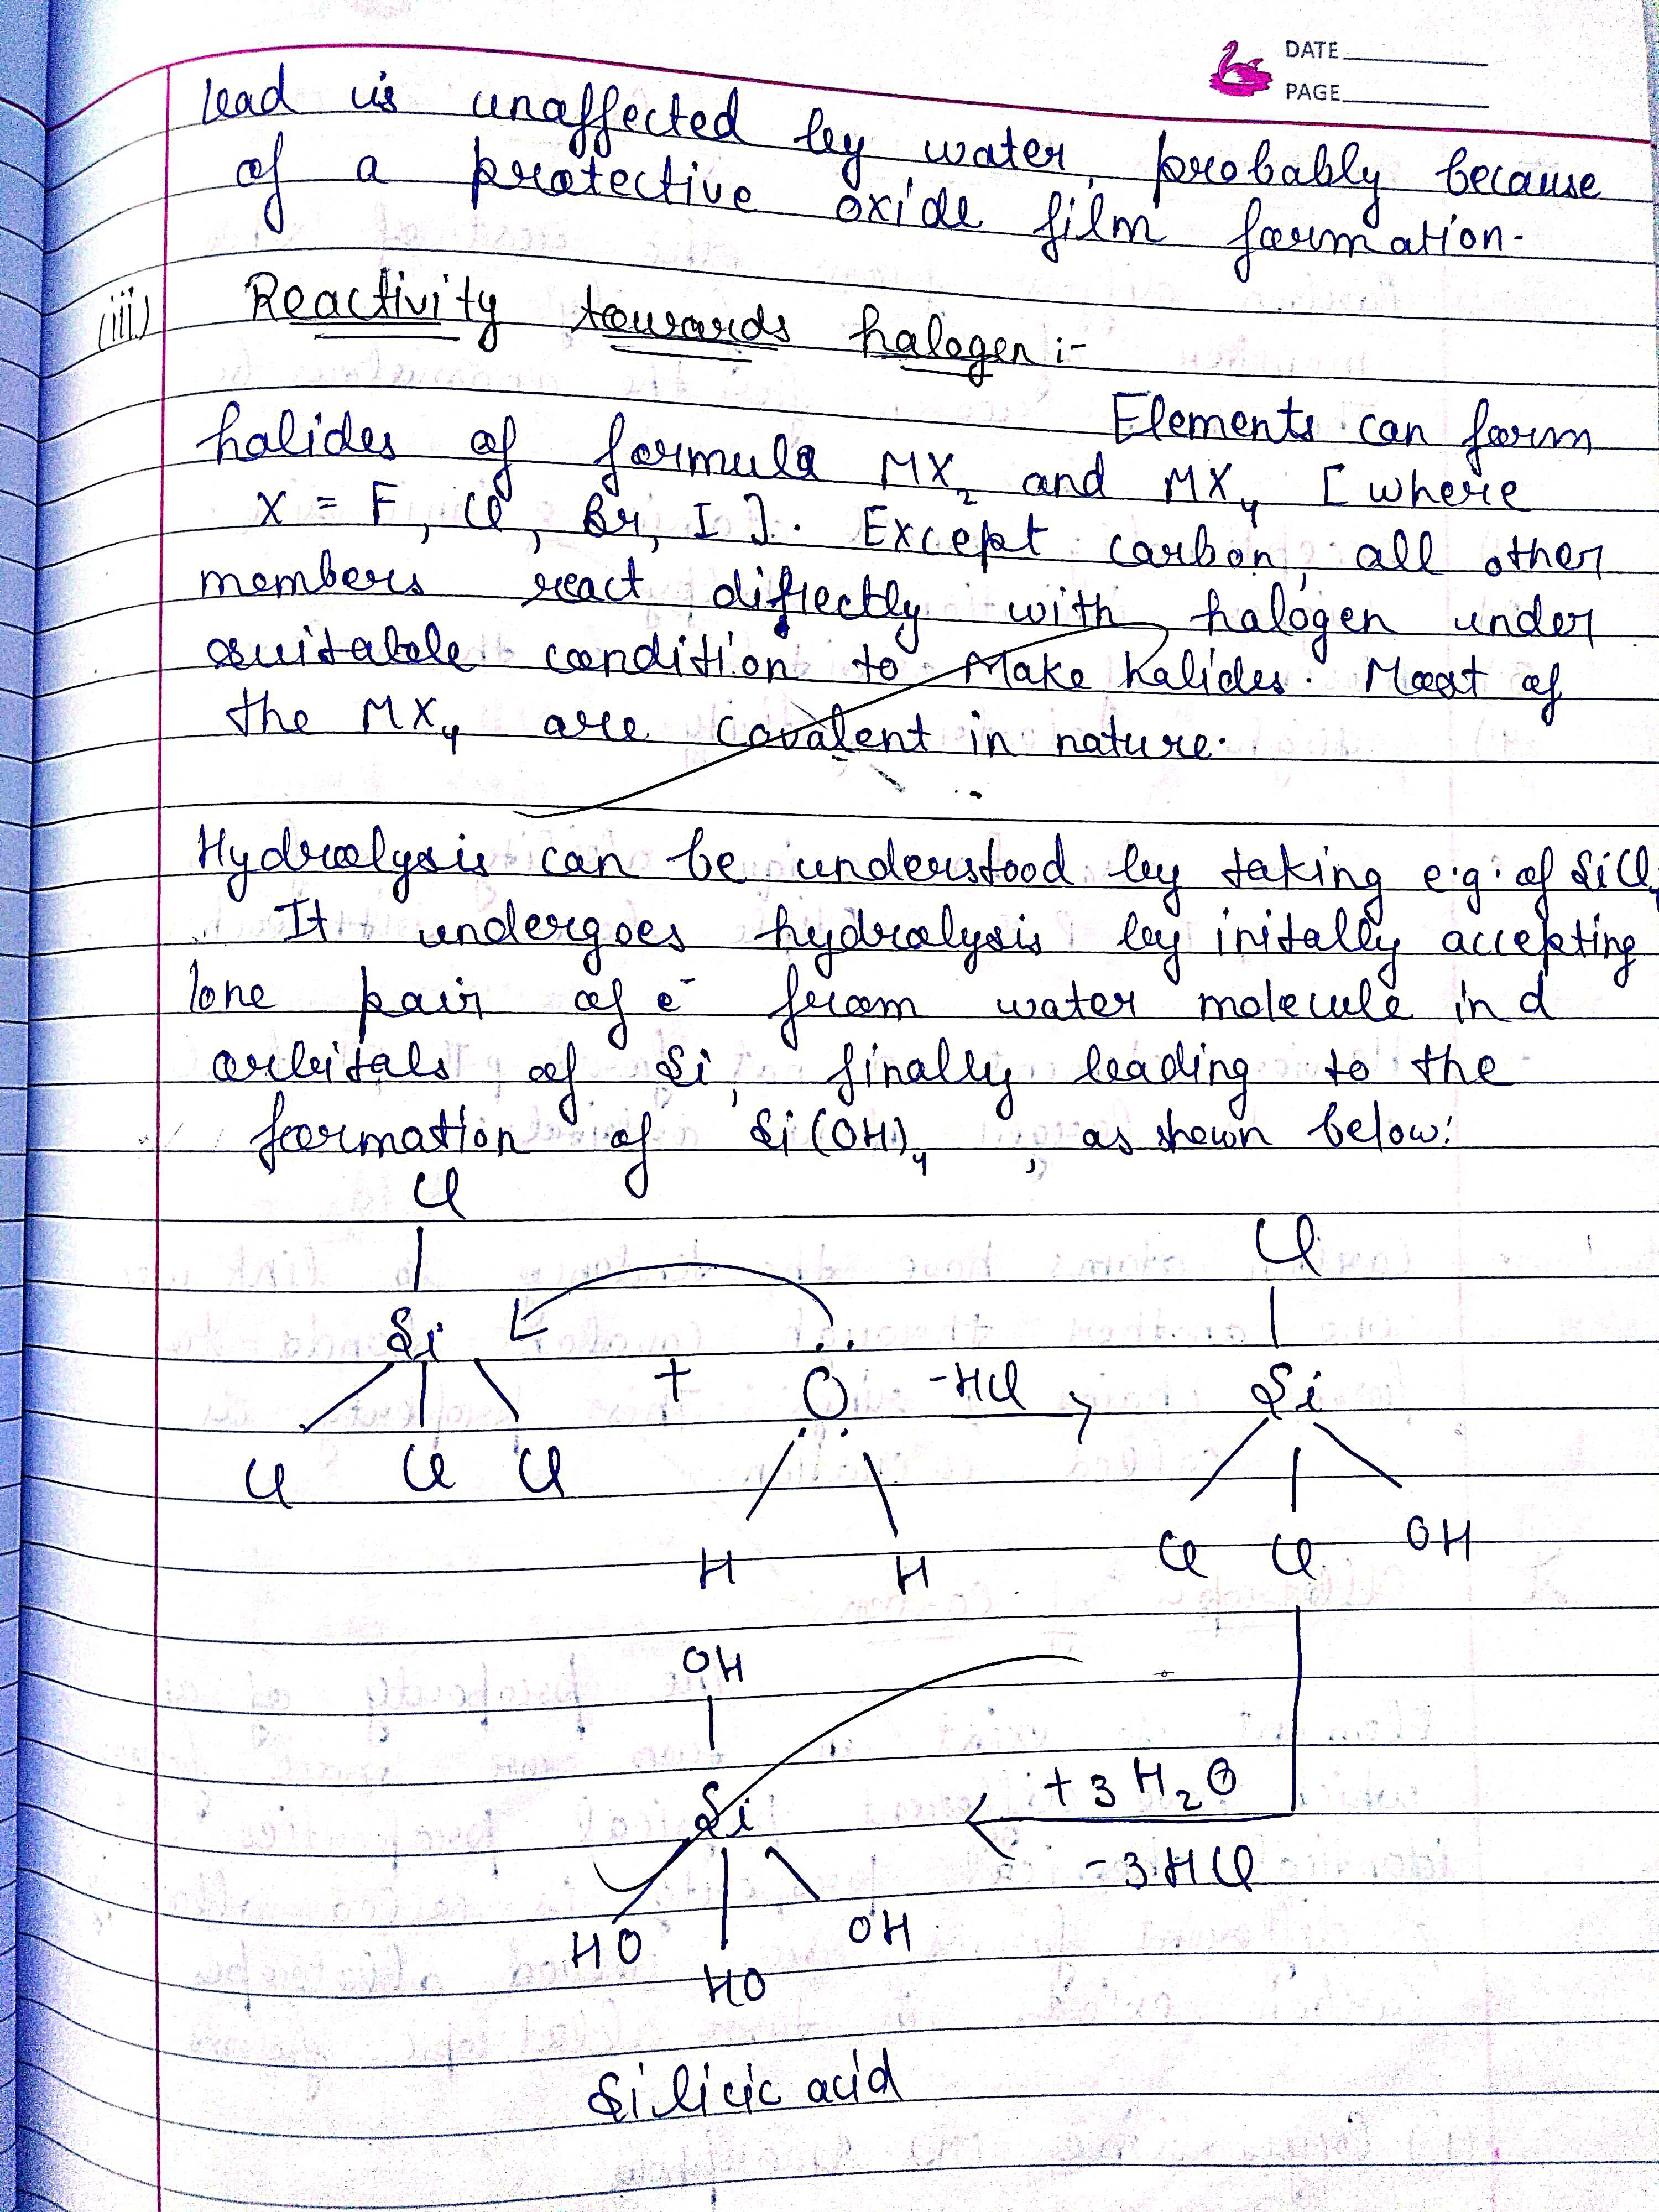 DATE
PAGE
lead is unaffected by water, probably because
of a protective oxide film formation.
(iii) Reactivity towards halogen :-
Elements can form
halides of formula MX₂ and MX₄ [where
X = F, Cl, Br, I ]. Except carbon, all other
members react directly with halogen under
suitable condition to Make halides. Most of
the MX₄ are covalent in nature.
Hydrolysis can be understood by taking e.g. of SiCl₄
It undergoes hydrolysis by initally accepting
lone pair of e⁻ from water molecule in d
orbitals of Si, finally leading to the
formation of Si(OH)₄, as shown below:
Cl
Cl
Si
+ O -HCl Si
Cl Cl Cl
H H
Cl Cl OH
OH
Si
+ 3 H₂O
- 3 HCl
HO HO OH
Silicic acid